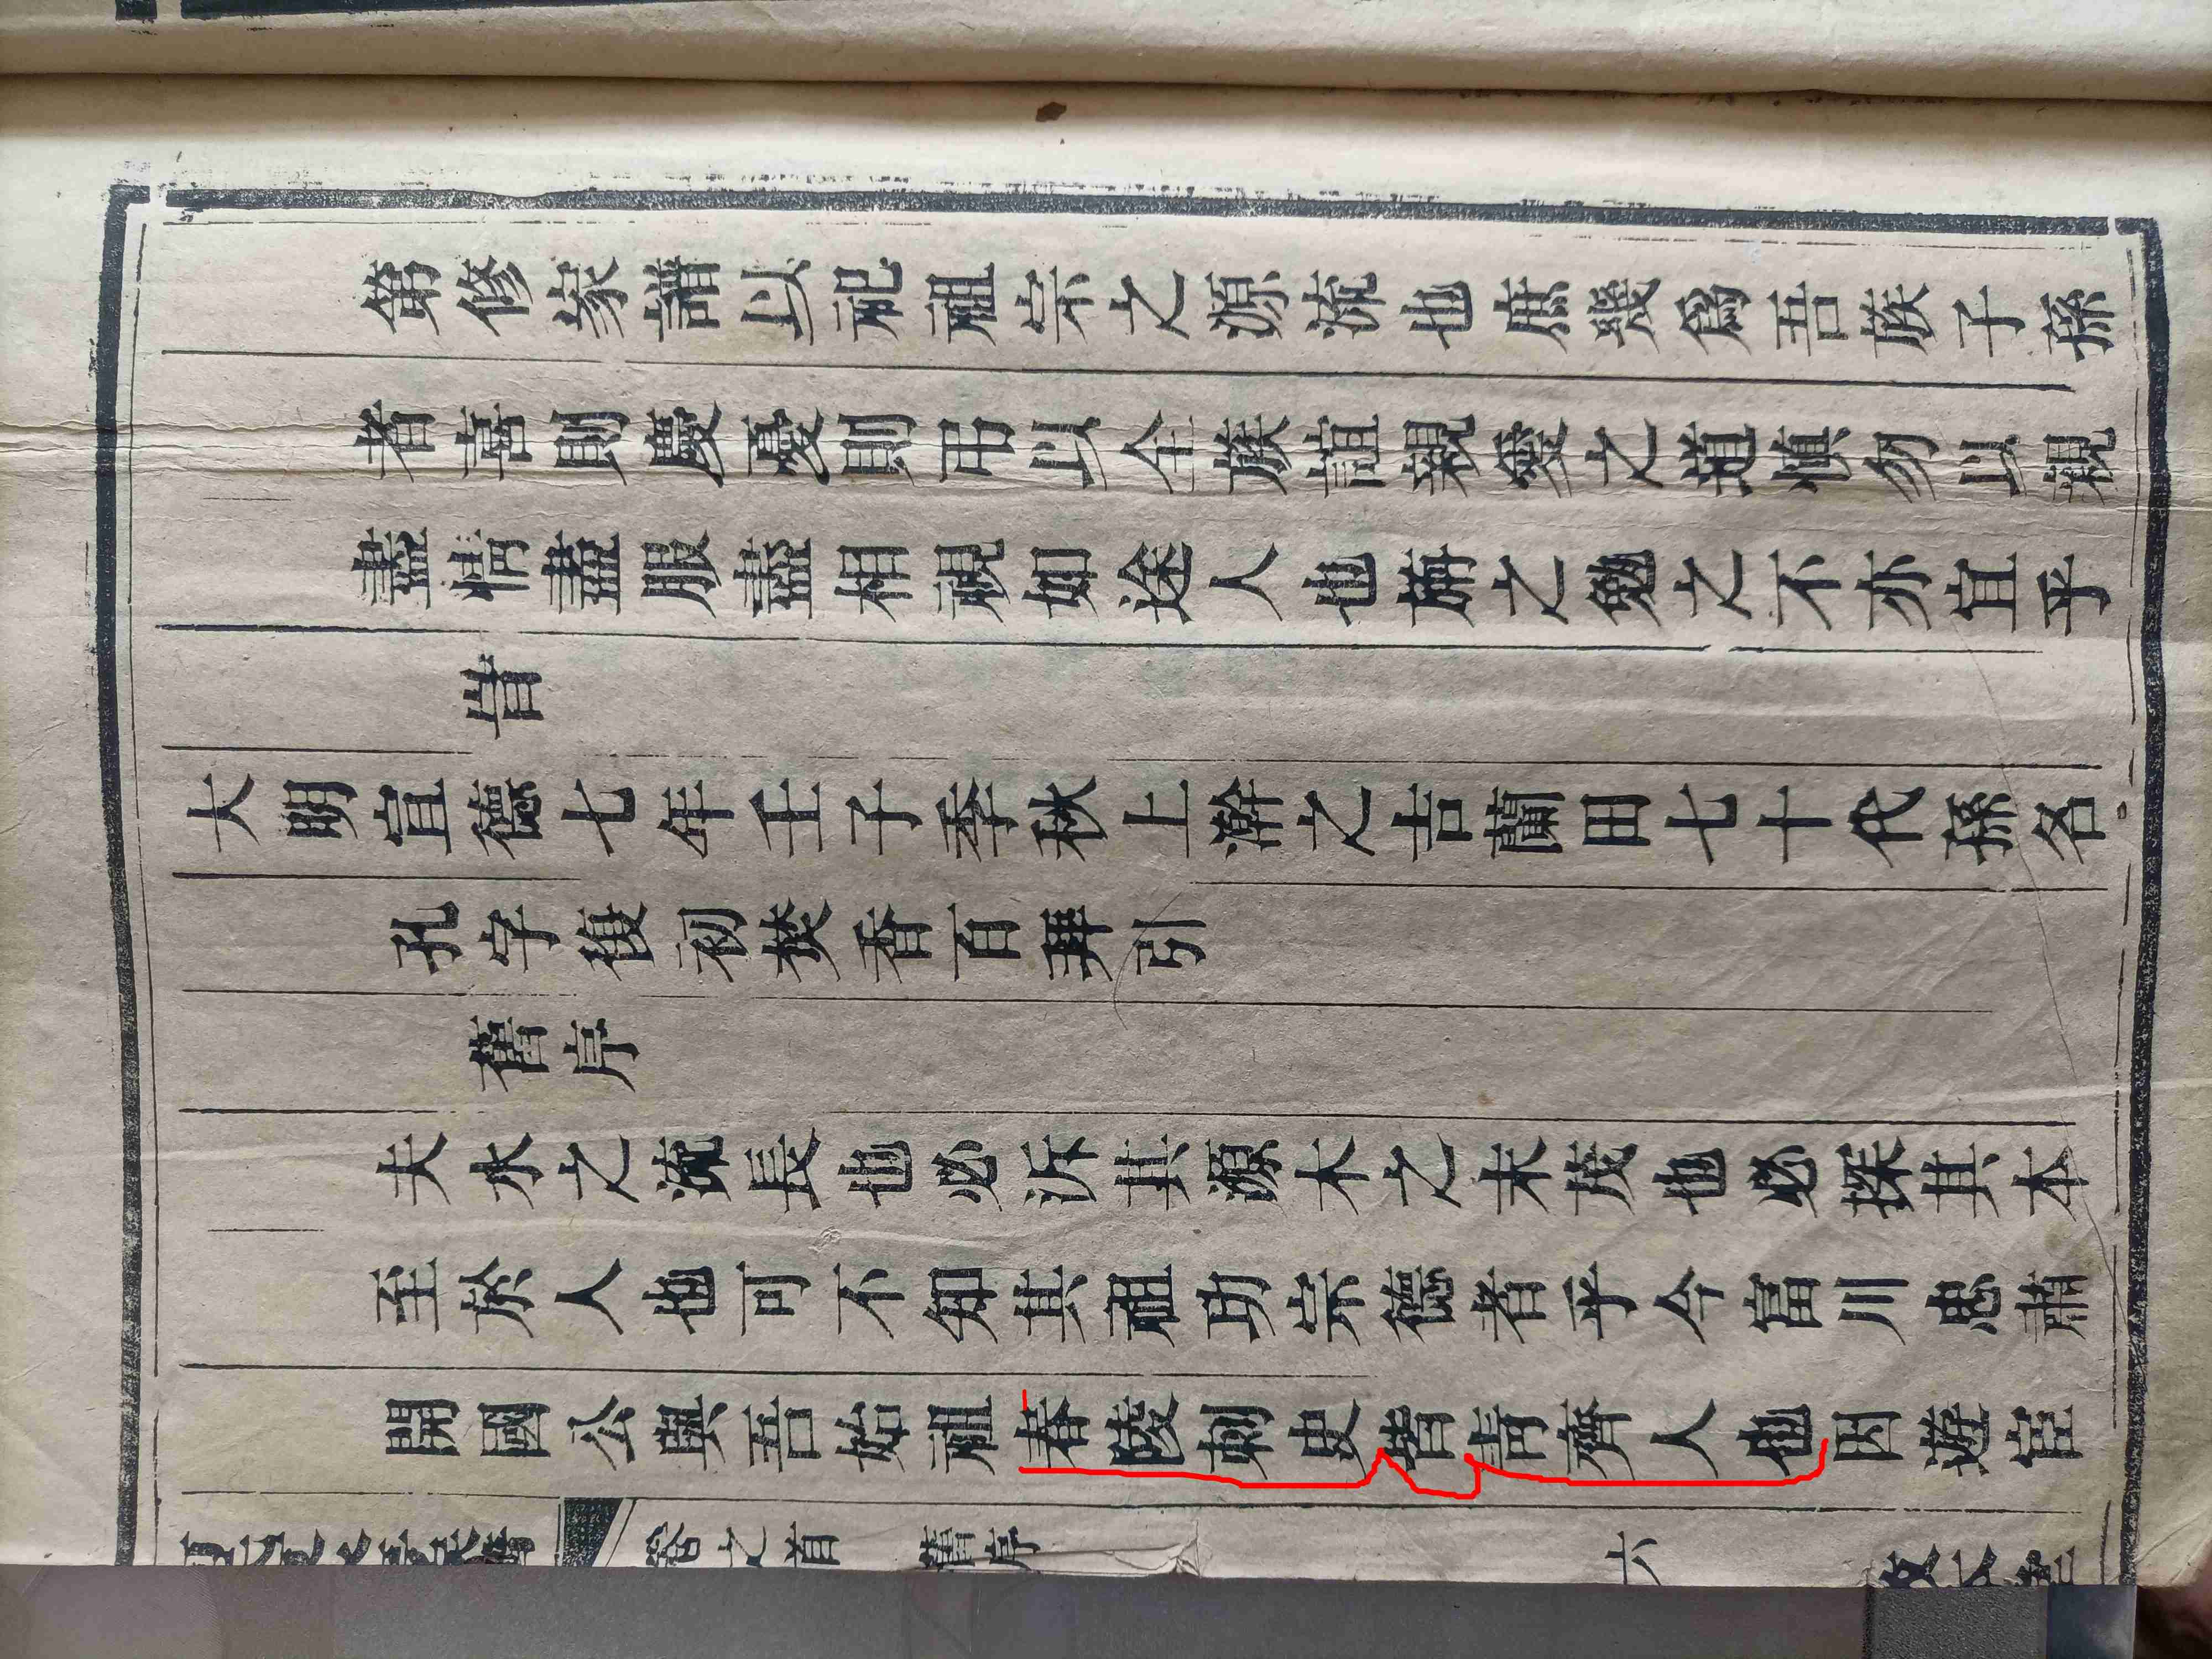 第修家譜以祀祖宗之源流也庶幾爲吾族子孫
者喜則慶憂則弔以全族誼親愛之道慎勿以親
盡情盡服盡相視如途人也旃之勉之不亦宜乎
旹
大明宣德七年壬子季秋上澣之吉蘭田七十代孫名
孔字復初焚香百拜引
舊序
夫水之流長也必泝其源木之末茂也必探其本
至於人也可不知其祖功宗德者乎今富川忠肅
開國公與吾始祖舂陵刺史皆青齊人也因遊宦
卷之首 舊序 六